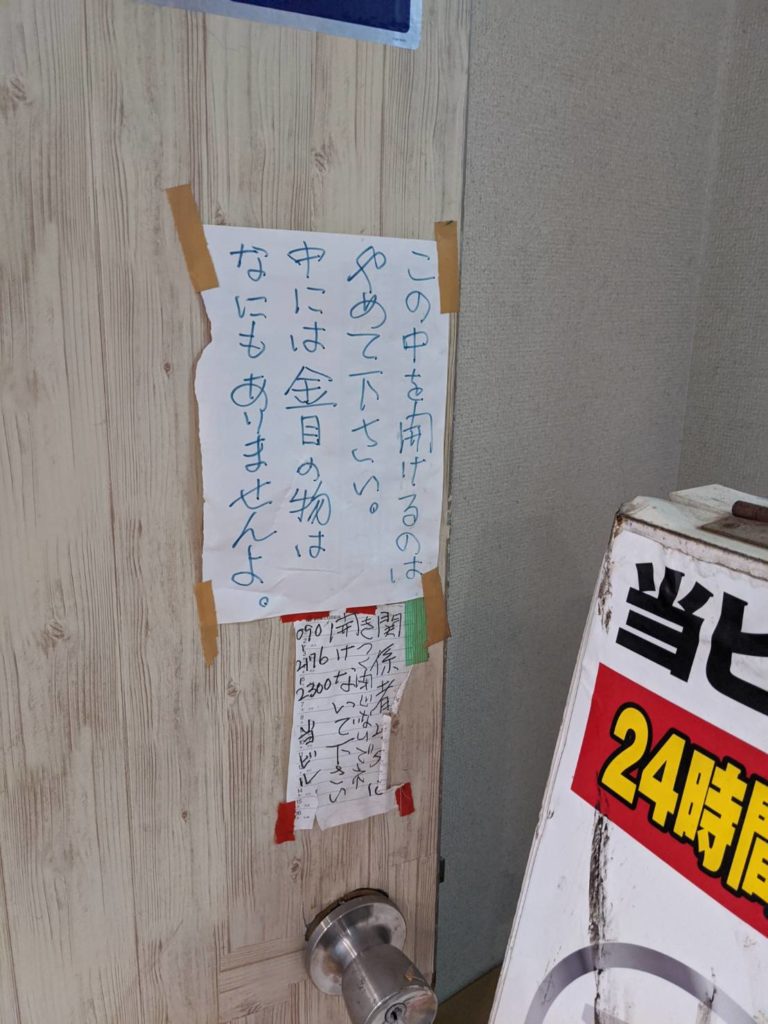 この中を開けるのは
やめて下さい。
中には金目の物は
なにもありませんよ。
関係者
きつく閉じないでネ
開けないで下さい
090
2176
2300
当ビル
当ビ
24時間